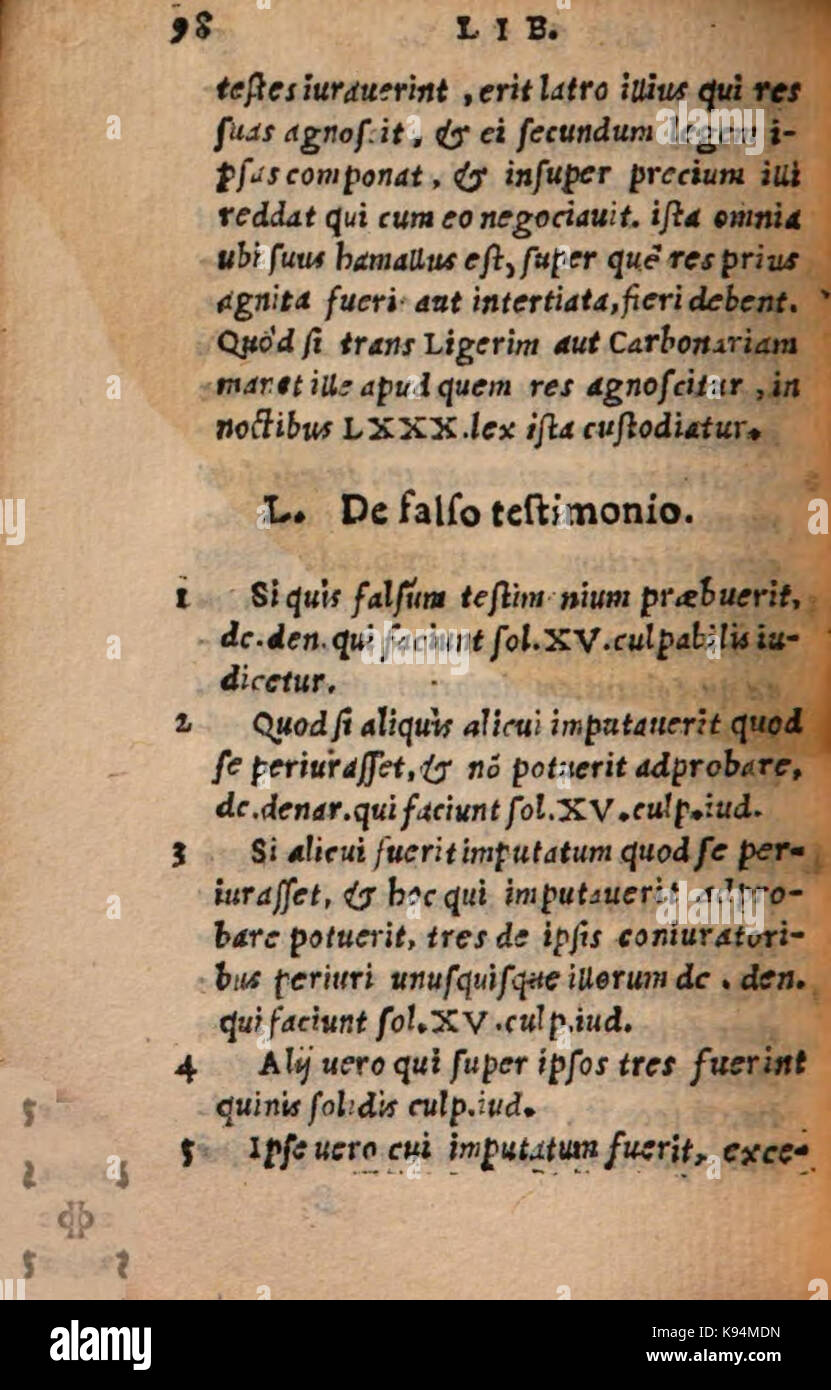 98 LIB.
teſtes iurauerint, erit latro illius qui res
ſuas agnoſcit, & ei ſecundum legem i-
pſas componat, & inſuper precium illi
reddat qui cum eo negociauit. iſta omnia
ubi ſuus hamallus eſt, ſuper quē res prius
agnita fueri aut intertiata, fieri debent.
Quòd ſi trans Ligerim aut Carbonariam
manet ille apud quem res agnoſcitur, in
noctibus LXXX. lex iſta cuſtodiatur.
L. De falſo teſtimonio.
1 Si quis falſum teſtim nium præbuerit,
dc. den. qui faciunt ſol. XV. culpabilis iu-
dicetur.
2 Quod ſi aliquis alicui imputauerit quod
ſe periuraſſet, & nō potuerit adprobare,
dc. denar. qui faciunt ſol. XV. culp. iud.
3 Si alicui fuerit imputatum quod ſe per-
iuraſſet, & hoc qui imputauerit adpro-
bare potuerit, tres de ipſis coniuratori-
bus periuri unuſquiſque illorum dc. den.
qui faciunt ſol. XV. culp. iud.
4 Alij uero qui ſuper ipſos tres fuerint
quinis ſolidis culp. iud.
5 Ipſe uero cui imputatum fuerit, exce-
alamy
Image ID: K94MDN
www.alamy.com